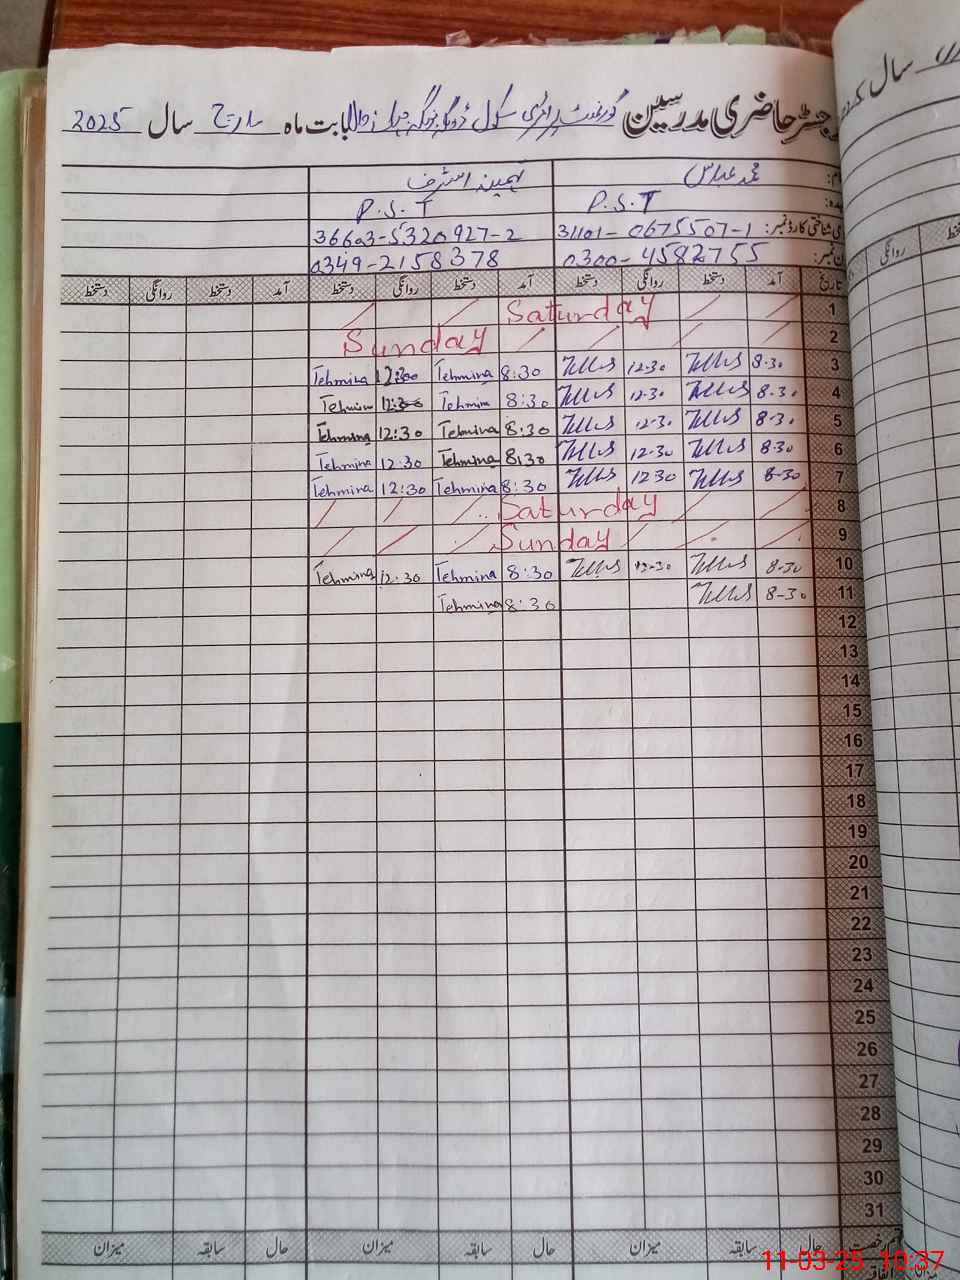 رجسٹر حاضری مدرسین گورنمنٹ پرائمری سکول بابت ماہ مارچ سال 2025
نام: محمد عباس تہمینہ اشرف
عہدہ: P.S.T P.S.T
شناختی کارڈ نمبر: 31101-0675507-1 36603-5320927-2
فون نمبر: 0300-4582755 0349-2158378
تاریخ آمد دستخط روانگی دستخط آمد دستخط روانگی دستخط آمد دستخط روانگی دستخط
1 Saturday
2 Sunday
3 8-30 12-30 8:30 Tehmina 12:30 Tehmina
4 8-30 12-30 8:30 Tehmina 12:30 Tehmina
5 8-30 12-30 8:30 Tehmina 12:30 Tehmina
6 8-30 12-30 8:30 Tehmina 12:30 Tehmina
7 8-30 12-30 8:30 Tehmina 12:30 Tehmina
8 Saturday
9 Sunday
10 8-30 12-30 8:30 Tehmina 12:30 Tehmina
11 8-30 8:30 Tehmina
12
13
14
15
16
17
18
19
20
21
22
23
24
25
26
27
28
29
30
31
قسم رخصت حال سابقہ میزان حال سابقہ میزان حال سابقہ میزان
11-03-25 10:37